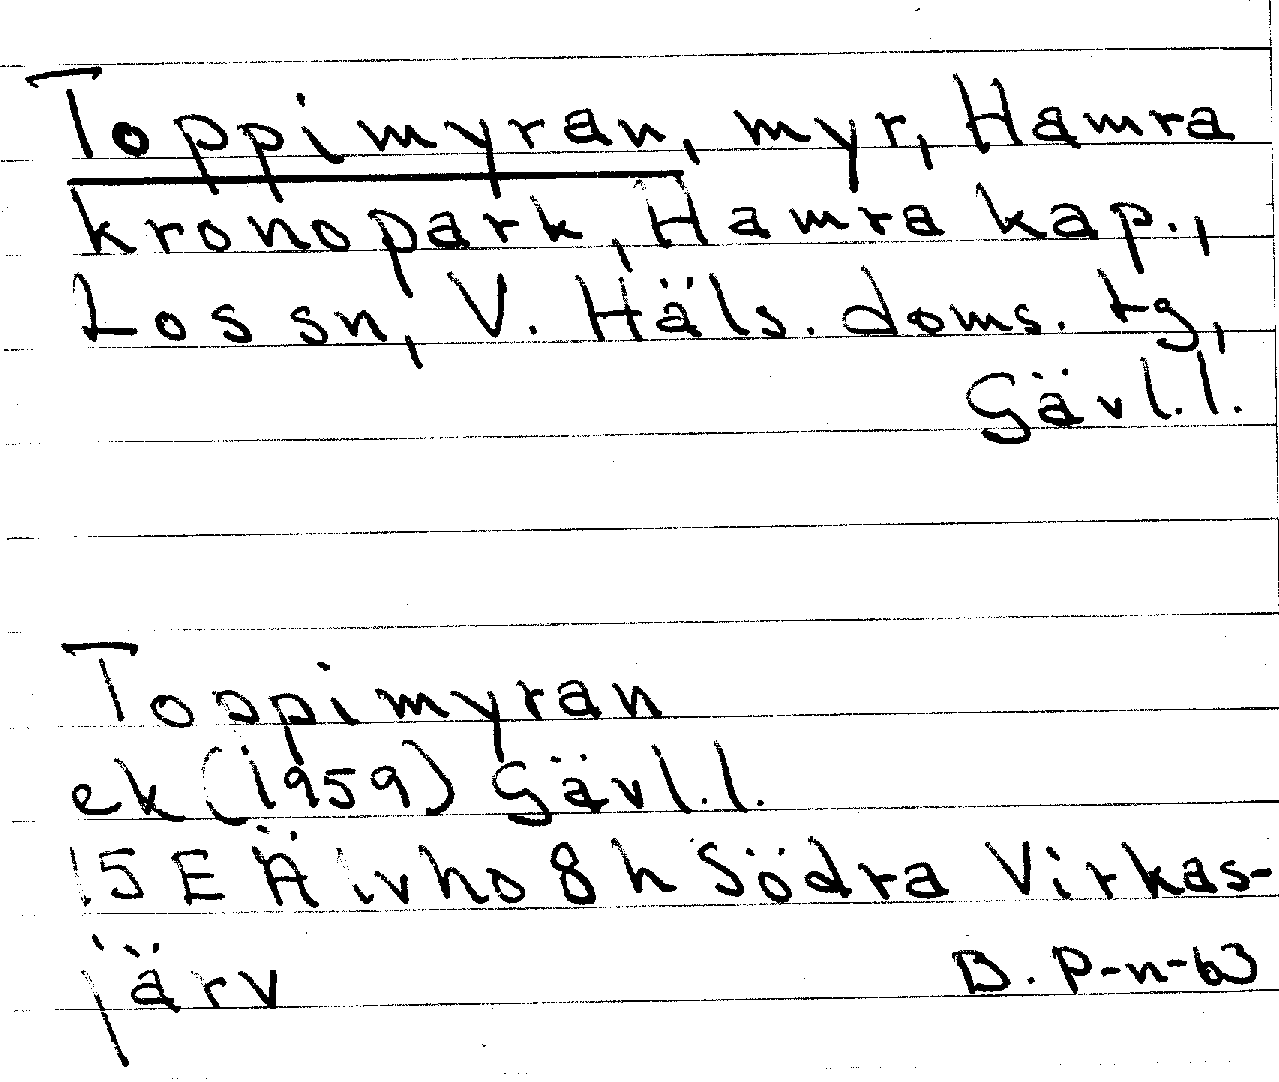 Toppimyran, myr, Hamra
kronopark, Hamra kap.,
Los sn, V. Häls. doms. tg,
Gävl.l.
Toppimyran
ek (1959) Gävl.l.
15E Äivho 8h Södra Virkas-
järv
B. P-n-63